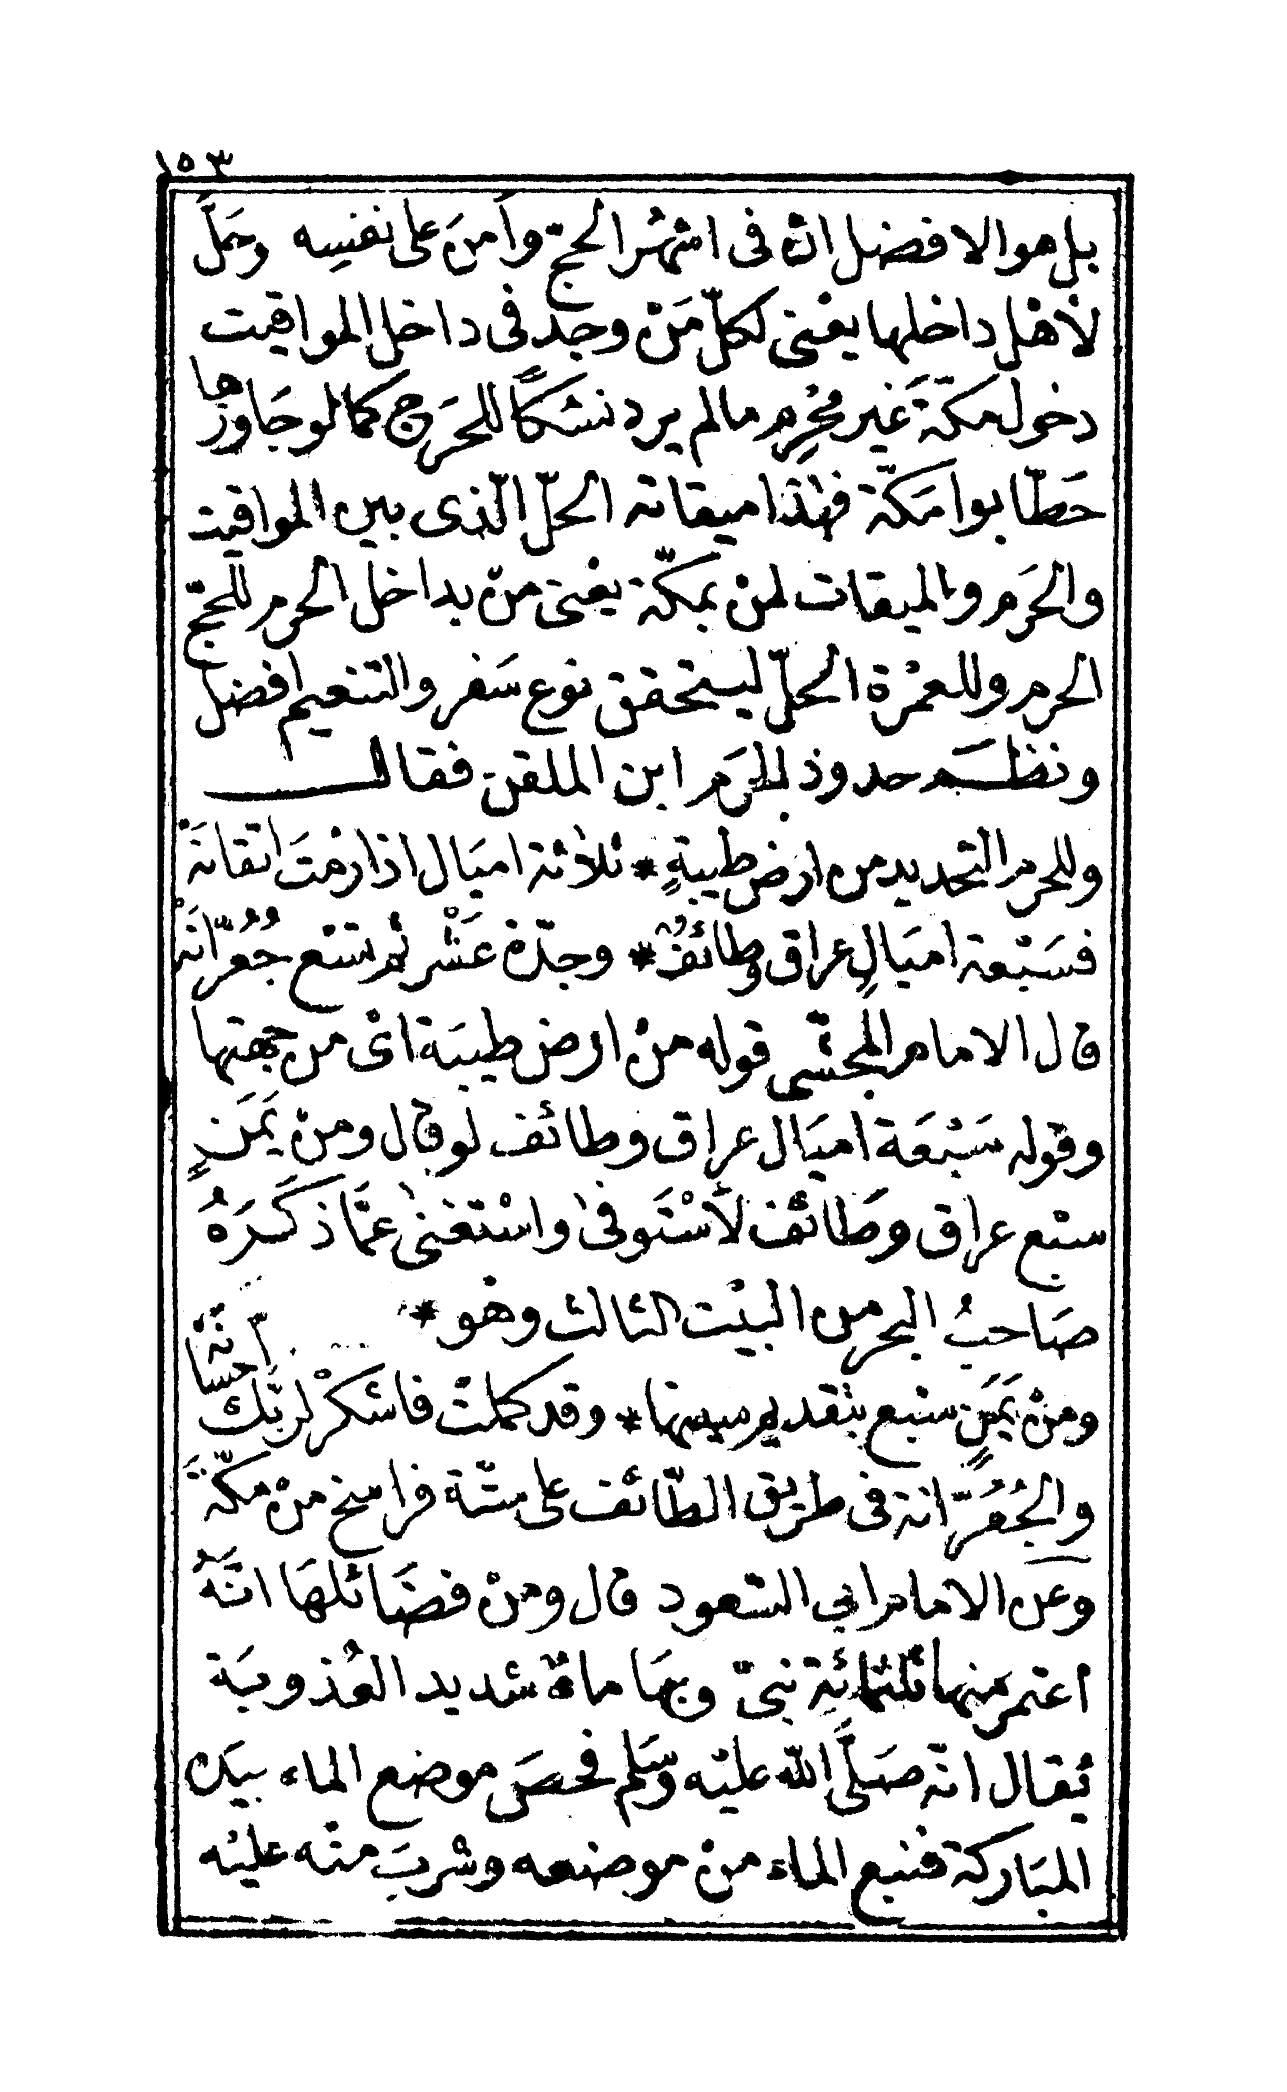 ١٥٣
بل هو الافضل ان فى اشهُر الحجّ وأمِنَ على نفسِه وحَلَّ
لأهْل داخلها يعْنى لكلّ مَنْ وجد فى داخل المواقيت
دخول مكّة غَير مُحْرِم مالم يرد نسُكاً للحَرَج كما لو جَاوزها
حَطّابوا مَكّة فهٰذا ميقاته الحلّ الّذى بين المواقيت
والحَرَم والميقات لمنْ بمكّة يعْنى منْ بداخل الحرم للحجّ
الحرم وللعمْرة الحلّ ليتحقق نوع سَفر والتنعيم افضل
ونظَم حدود الحرَم ابن الملقن فقال
وللحرم التحديد من ارض طيبةٍ * ثلاثة اميَال اذا رمْتَ اتقانَهْ
فسَبْعة اميَالٍ عراق وطائفٌ * وجدّة عَشْر ثم تسْع جُعُرّانَهْ
قال الامام المحشّى قوله منْ ارض طيبَة اىْ من جهتها
وقوله سَبْعَة اميَال عراق وطائف لو قال ومنْ يَمَنٍ
سبْع عراق وَطائف لأسْتَوفىٰ واسْتغنىٰ عمَّا ذكَرَهُ
صَاحبُ البحر من البيْت الثالث وهو *
ومنْ يَمَنٍ سبْع بتقديم سينها * وقد كملتْ فاشكرْ لربّك احسَانَهْ
والجُعُرّانة فى طريق الطّائف على ستّة فراسخ منْ مكّةَ
وعن الامام ابى السّعود قال ومنْ فضَائلهَا انَّهُ
اعتمَر منها ثلثمائةِ نبىّ وبهَا ماءٌ شديد العُذوبَة
يُقال انّه صَلَّى الله عليْه وسَلم فحصَ موضع الماء بيَده
المبَاركة فنبع الماء منْ موضعه وشربَ منْه عليْه